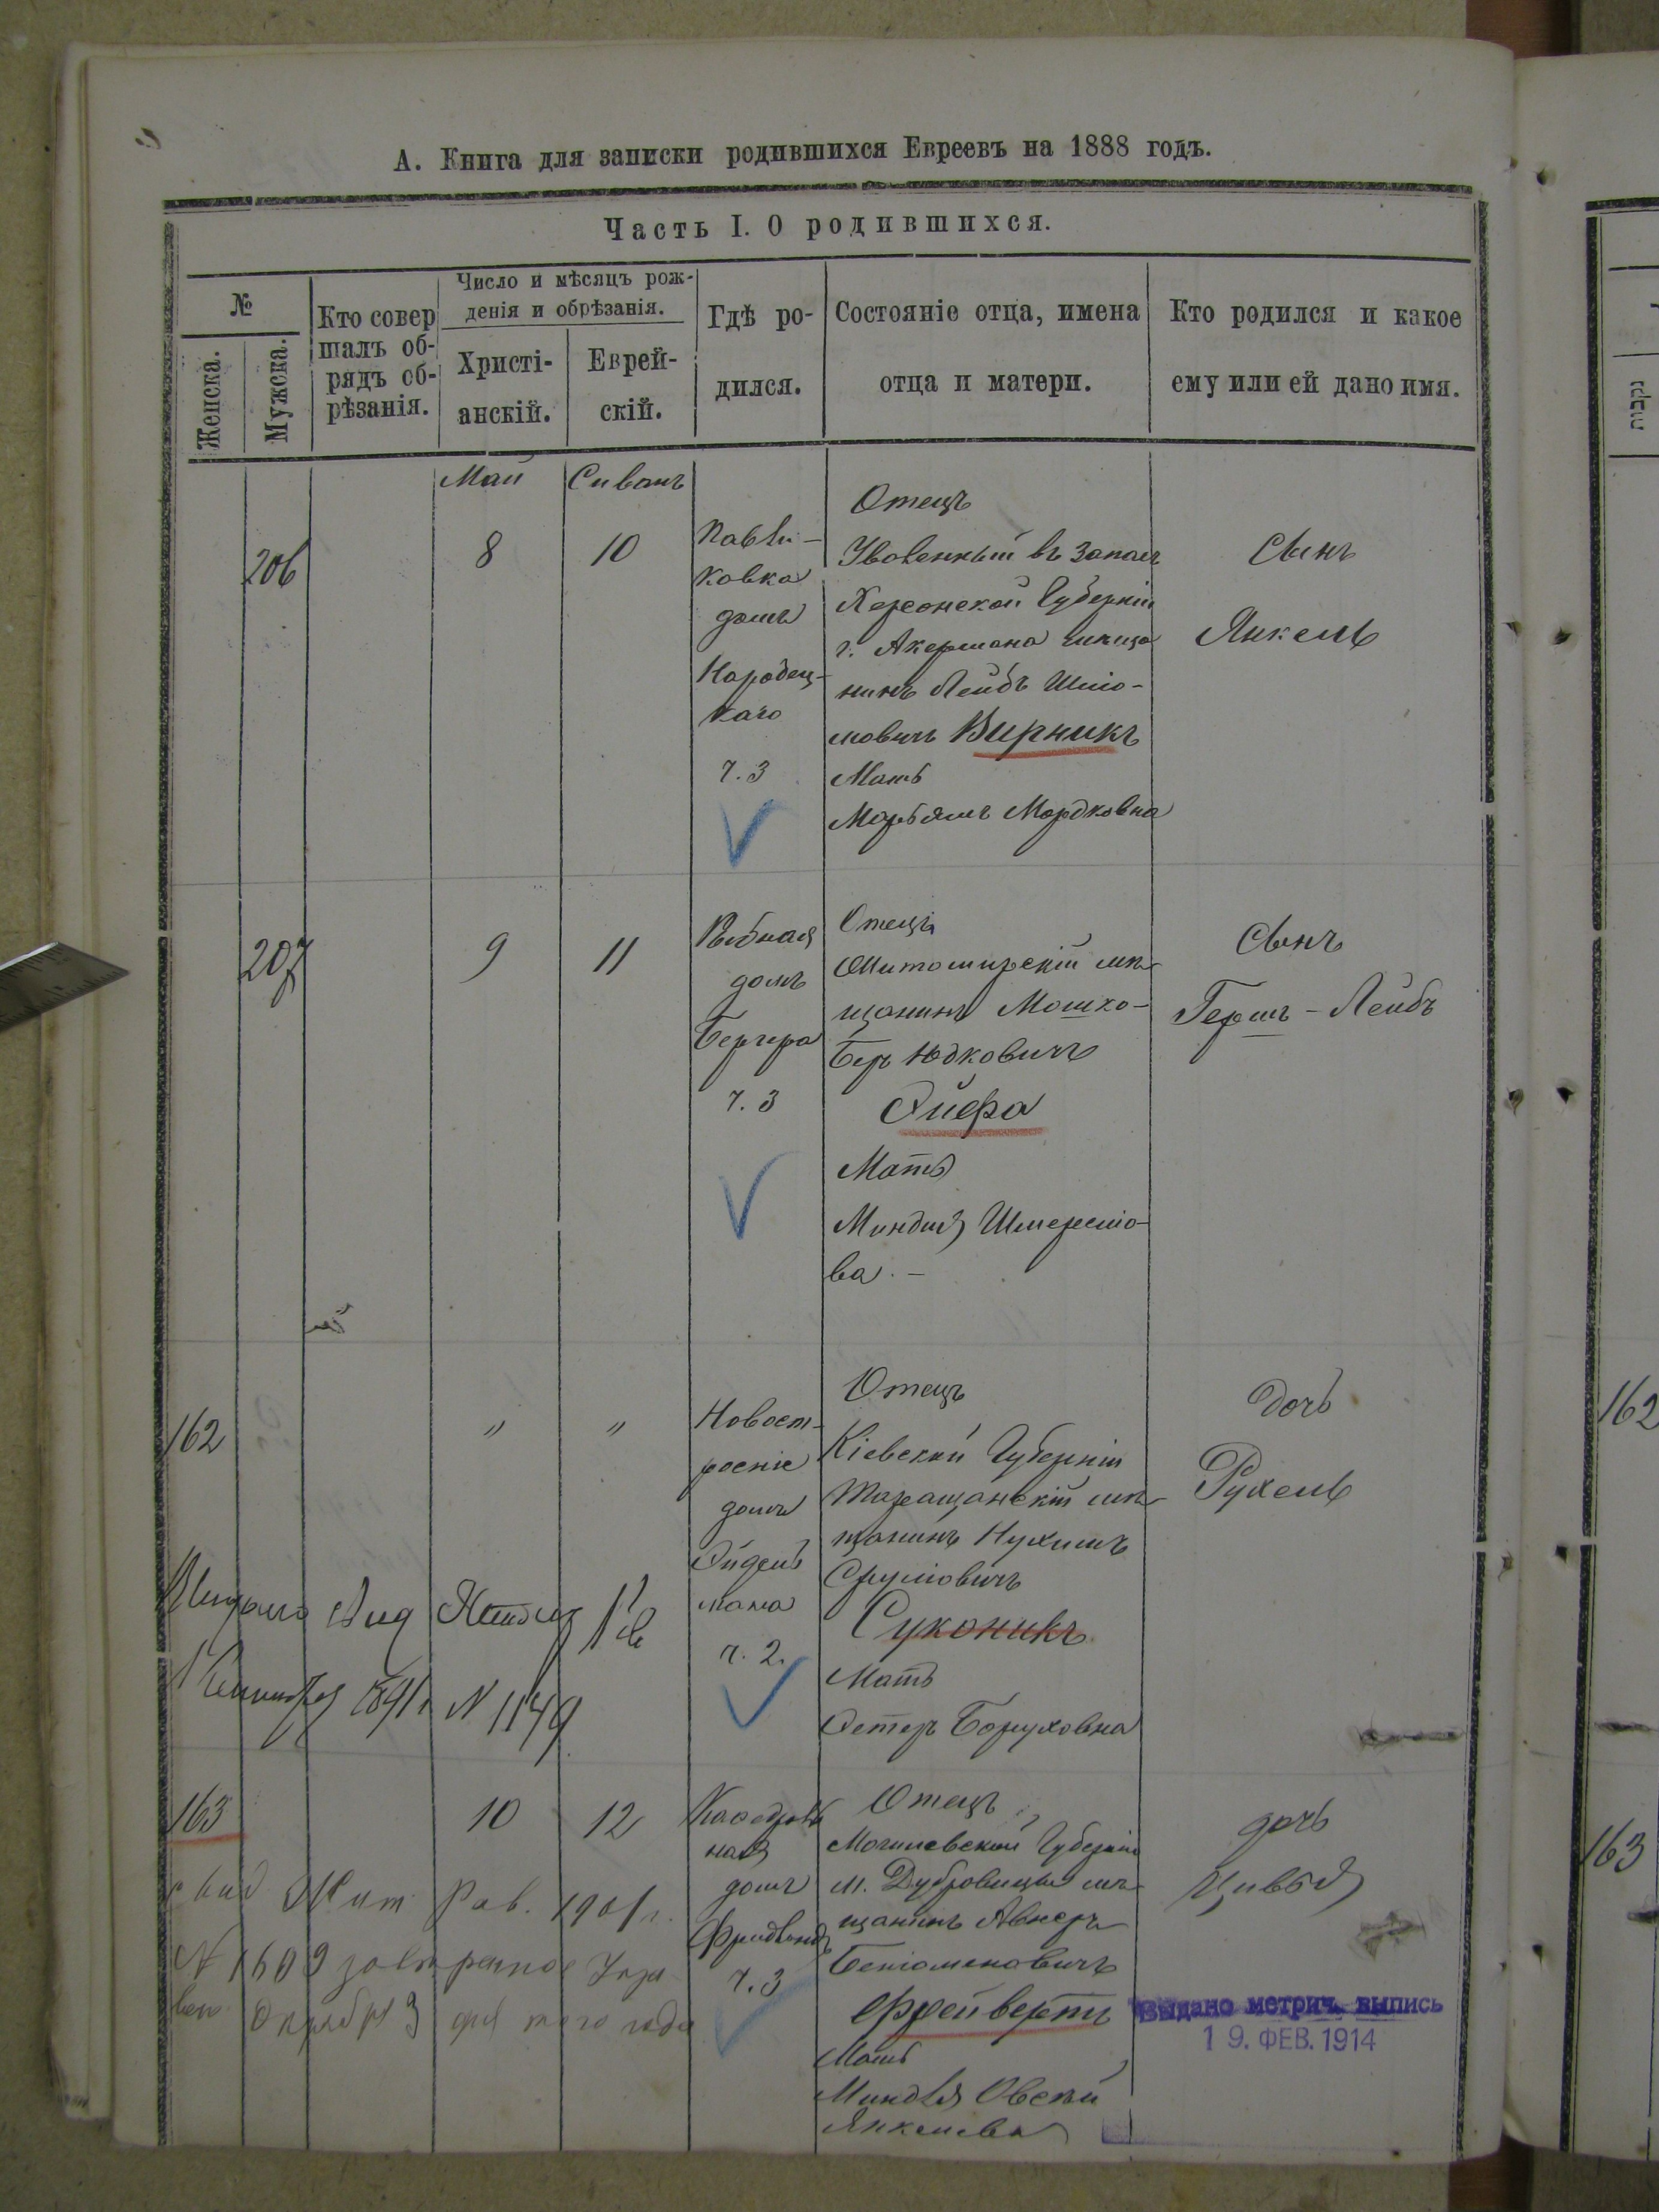 А. Книга для записки родившихся Евреевъ на 1888 годъ.
Часть I. О родившихся.
№
Женска.
Мужска.
Кто совер
шалъ об-
рядъ об-
рѣзанія.
Число и мѣсяцъ рож-
денія и обрѣзанія.
Христі-
анскій.
Еврей-
скій.
Гдѣ ро-
дился.
Состояніе отца, имена
отца и матери.
Кто родился и какое
ему или ей дано имя.
Май
Сиванъ
206
8
10
Павли-
ковка
домъ
ч. 3
Отецъ
Уволенный въ запасъ
Херсонской Губерніи
г. Акермана мѣща
нинъ Лейбъ Шлio-
мовичъ Вирникъ
Мать
Марьямъ Мордковна
Сынъ
Янкель
207
9
11
Рыбная
домъ
Бергера
ч. 3
Отецъ
Житомирскій мѣ-
щанинъ Мошко-
Беръ Юдковичъ
Ойфра
Мать
Миндля Шмерелio-
ва. -
Сынъ
Гершъ - Лейбъ
162
"
"
Новост-
роеніе
домъ
Ойдель
мана
ч. 2.
Отецъ
Кіевской Губерніи
Таращанскій мѣ-
щанинъ Нухимъ
Сруліовичъ
Суконикъ
Мать
Эстеръ Боруховна
дочь
Рухель
1891 г N 1149
163
10
12
Кафедраль
ная
домъ
ч. 3
Отецъ
Могилевской Губерніи
м. Дубровицы мѣ-
щанинъ Авнеръ
Беніоменовичъ
Фрейвертъ
Мать
Миндля
Янкелева
дочь
Цивья
свид Жит Рав. 1901 г.
N 1609
Октября 3 дня того года
Выдано метрич. выпись
19. ФЕВ. 1914
נקבות
162
163